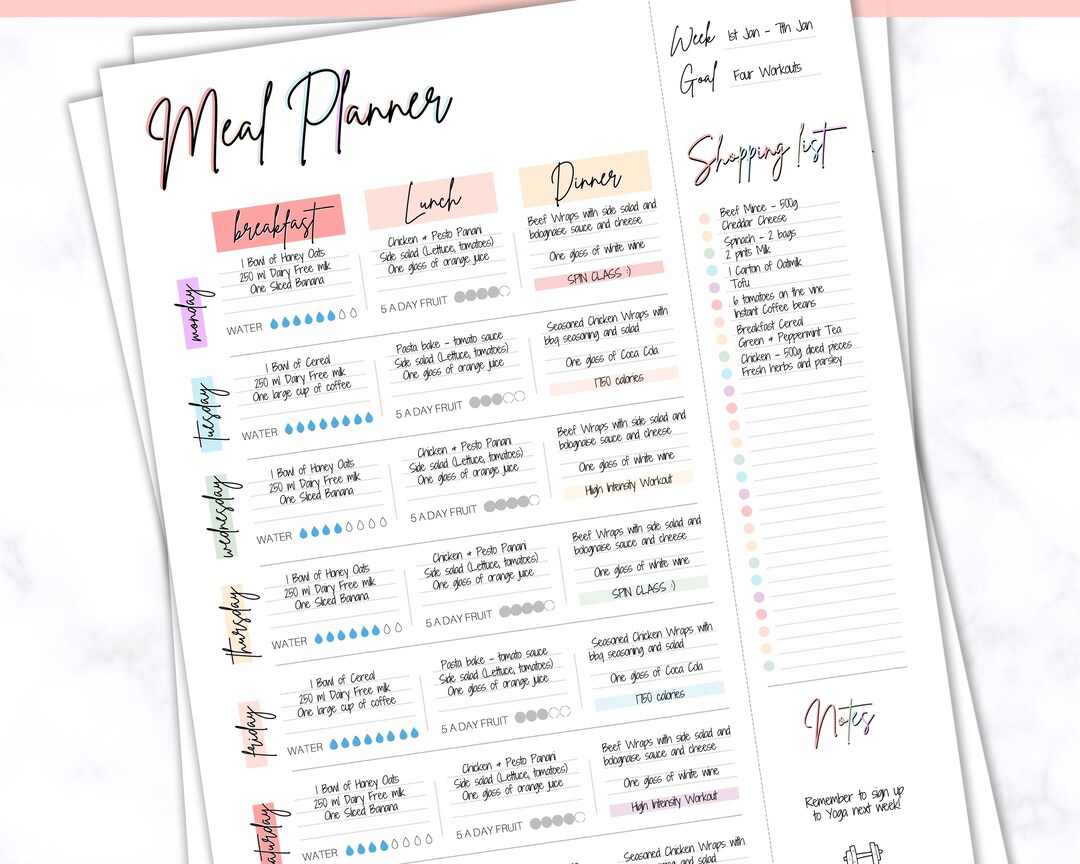 Meal Planner
breakfast
Lunch
Dinner
monday
1 Bowl of Honey Oats
250 ml Dairy Free milk
One Sliced Banana
WATER
Chicken + Pesto Panani
Side salad (Lettuce, tomatoes)
One glass of orange juice
5 A DAY FRUIT
Beef Wraps with side salad and
bolognaise sauce and cheese
One glass of white wine
SPIN CLASS :)
tuesday
1 Bowl of Cereal
250 ml Dairy Free milk
One large cup of coffee
WATER
Pasta bake - tomato sauce
Side salad (Lettuce, tomatoes)
One glass of orange juice
5 A DAY FRUIT
Seasoned Chicken Wraps with
bbq seasoning and salad
One glass of Coca Cola
1750 calories
wednesday
1 Bowl of Honey Oats
250 ml Dairy Free milk
One Sliced Banana
WATER
Chicken + Pesto Panani
Side salad (Lettuce, tomatoes)
One glass of orange juice
5 A DAY FRUIT
Beef Wraps with side salad and
bolognaise sauce and cheese
One glass of white wine
High Intensity Workout
thursday
1 Bowl of Honey Oats
250 ml Dairy Free milk
One Sliced Banana
WATER
Chicken + Pesto Panani
Side salad (Lettuce, tomatoes)
One glass of orange juice
5 A DAY FRUIT
Beef Wraps with side salad and
bolognaise sauce and cheese
One glass of white wine
SPIN CLASS :)
friday
1 Bowl of Cereal
250 ml Dairy Free milk
One large cup of coffee
WATER
Pasta bake - tomato sauce
Side salad (Lettuce, tomatoes)
One glass of orange juice
5 A DAY FRUIT
Seasoned Chicken Wraps with
bbq seasoning and salad
One glass of Coca Cola
1750 calories
aturday
1 Bowl of Honey Oats
250 ml Dairy Free milk
One Sliced Banana
WATER
Chicken + Pesto Panani
Side salad (Lettuce, tomatoes)
One glass of orange juice
5 A DAY FRUIT
Beef Wraps with side salad and
bolognaise sauce and cheese
One glass of white wine
High Intensity Workout
Seasoned Chicken Wraps with
Week 1st Jan - 7th Jan
Goal Four Workouts
Shopping list
Beef Mince - 500g
Cheddar Cheese
Spinach - 2 bags
2 pints Milk
1 Carton of Oatmilk
Tofu
6 tomatoes on the vine
Instant Coffee beans
Breakfast Cereal
Green + Peppermint Tea
Chicken - 500g diced pieces
Fresh herbs and parsley
Notes
Remember to sign up
to Yoga next week!